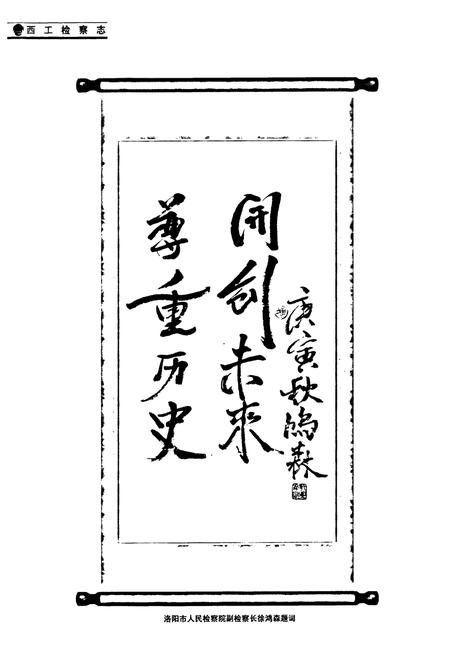 西工检察志
尊重历史
开创未來
庚寅秋鸿森
洛阳市人民检察院副检察长徐鸿森题词